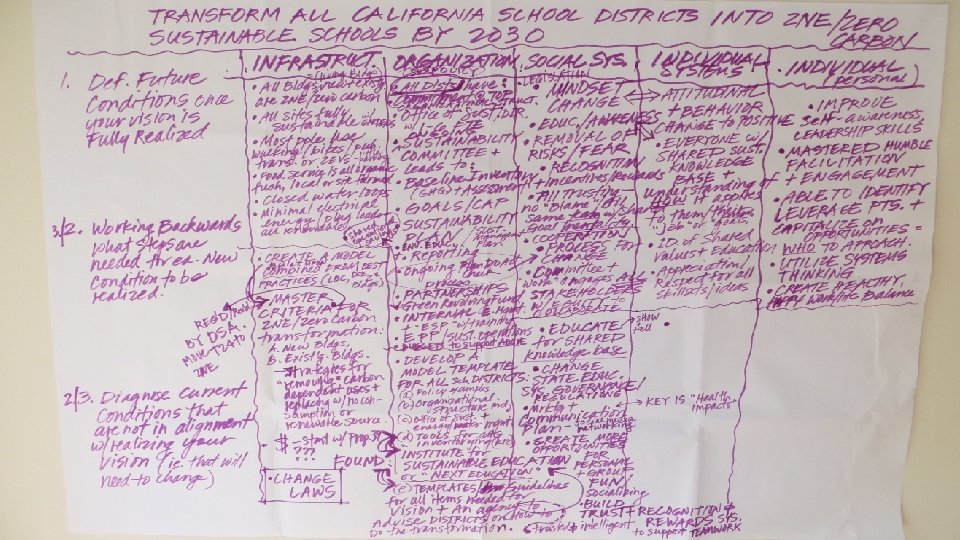 TRANSFORM ALL CALIFORNIA SCHOOL DISTRICTS INTO ZNE/ZERO CARBON
SUSTAINABLE SCHOOLS BY 2030
1. Def. Future
Conditions once
your vision is
Fully Realized
3/2. Working Backwards
what steps are
needed for ea. New
Condition to be
realized.
2/3. Diagnose current
Conditions that
are not in alignment
w/realizing your
Vision (ie. that will
need to change)
INFRASTRUCT.
• All Bldgs new+exist
are ZNE/zero carbon
• All sites fully
sustainable
• Most people use
walking/bikes/pub.
trans. or ZEVs
• Food service is all organic
fresh, local or site farmed
• Closed water loops
• Minimal electrical
energy/plug loads
all renewable
• CREATE A MODEL
COMBINED FROM BEST
PRACTICES
• MASTER
CRITERIA FOR
ZNE/zero carbon
transformation:
A. New Bldgs.
B. Exist'g Bldgs.
- strategies for
"removing" carbon
dependent uses +
replacing w/
or
renewable source.
$ - Start w/Prop 39
???
• CHANGE
LAWS
REQ'D from
BY D.S.A.
MOVE T24 TO
ZNE
ORGANIZATION
POLICY
• All Dists have
• Office of Sust. Dir.
w/
ON GOING
SUSTAINABILITY
COMMITTEE +
Leads to:
• Baseline Inventory
(GHG) + Assessment
• GOALS/CAP
• SUSTAINABILITY
PLAN
• ENV. EDUC.
• Reporting
• ongoing
process
• PARTNERSHIPS
• Green Revolving Fund
• INTERNAL E. Mgmt.
+ ESP w/training
E.P.P. Sust. operations
to support above
• DEVELOP A
MODEL TEMPLATE
FOR ALL SCH. DISTRICTS:
(a) Policy examples
(b) Organizational
structure
(c) Office of Sust +
energy/water mgmt
(d) TOOLS for
inventorying
FOUND INSTITUTE for
SUSTAINABLE EDUCATION
or "NEXT EDUCATION"
(e) TEMPLATES/Guidelines
for all items needed for
Vision + An agency to
Advise DISTRICTS on How to
Do the transformation.
SOCIAL SYS.
LEGISLATION
• MINDSET
CHANGE
• EDUC./AWARENESS
• REMOVAL OF
RISKS/FEAR
• RECOGNITION
+ Incentives/Rewards
• All trusting -
no "Blame" "All
same team w/shared
goal
• COOPERATION
• PROCESS for
CHANGE
• Committee +
work engages ALL
STAKEHOLDERS
w/EQUITY
COLLABORATE
• EDUCATE
for SHARED
Knowledge base
• CHANGE
STATE EDUC.
SYS. GOVERNANCE/
REGULATIONS
• Mrktg +
Communication
Plan - social media
networks
• CREATE MORE
OPPORTUNITIES
FOR
PERSONAL
GROUP
FUN/
socializing
• BUILD
TRUST + RECOGNITION &
REWARDS SYS.
to support TEAMWORK
trusted + intelligent
INDIVIDUAL
SYSTEMS
• ATTITUDINAL
+ BEHAVIOR
CHANGE TO POSITIVE
• EVERYONE w/
SHARED SUST.
KNOWLEDGE
BASE +
understanding of
HOW it applies
to them/
"job" or "goals"
• ID of Shared
values + Education
• Appreciation/
Respect for all
skillsets/ideas
KEY IS "Health
impacts"
INDIVIDUAL
(personal)
• IMPROVE
self-awareness,
LEADERSHIP SKILLS
• MASTERED HUMBLE
FACILITATION
+ ENGAGEMENT
• ABLE TO IDENTIFY
LEVERAGE PTS. +
CAPITALIZE ON
OPPORTUNITIES =
WHO TO APPROACH.
• UTILIZE SYSTEMS
THINKING
• CREATE HEALTHY,
HAPPY work/life Balance